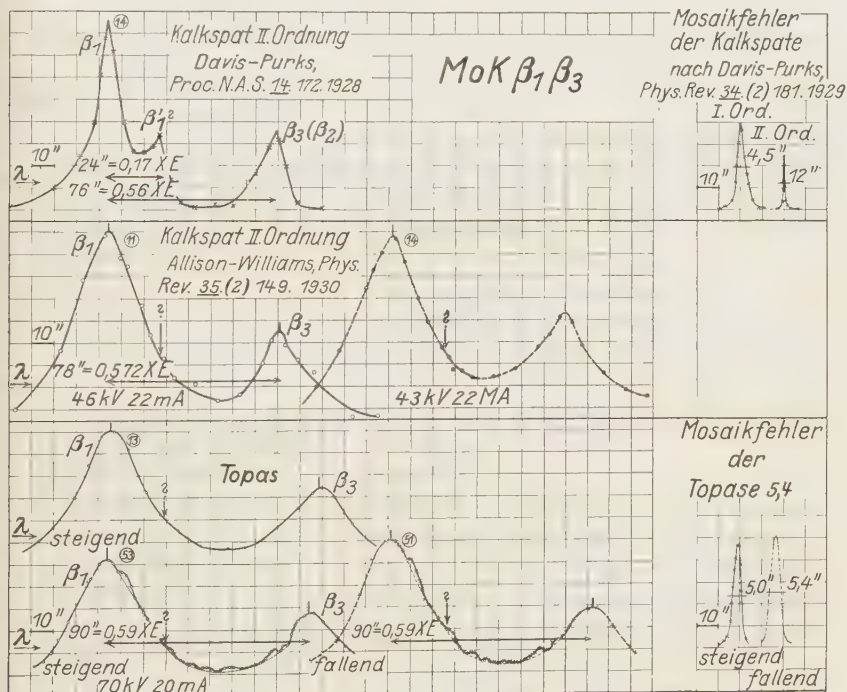 Kalkspat II. Ordnung
Davis-Purks,
Proc. N.A.S. 14. 172. 1928
14
β₁
β₁'
?
β₃(β₂)
10"
λ
24"=0,17 XE
76"=0,56 XE
MoK β₁ β₃
Mosaikfehler
der Kalkspate
nach Davis-Purks,
Phys. Rev. 34. (2) 181. 1929
I. Ord.
II. Ord.
4,5"
10"
12"
β₁
11
Kalkspat II. Ordnung
Allison-Williams, Phys.
Rev. 35. (2) 149. 1930
14
?
?
10"
β₃
λ
78"=0,572 XE
46 kV 22 mA
43 kV 22 MA
β₁
13
Topas
?
β₃
λ
steigend
β₁
53
51
?
?
10"
β₃
λ
90"=0,59 XE
90"=0,59 XE
steigend
fallend
70 kV 20 mA
Mosaikfehler
der
Topase 5,4
5,0"
5,4"
10"
steigend
fallend